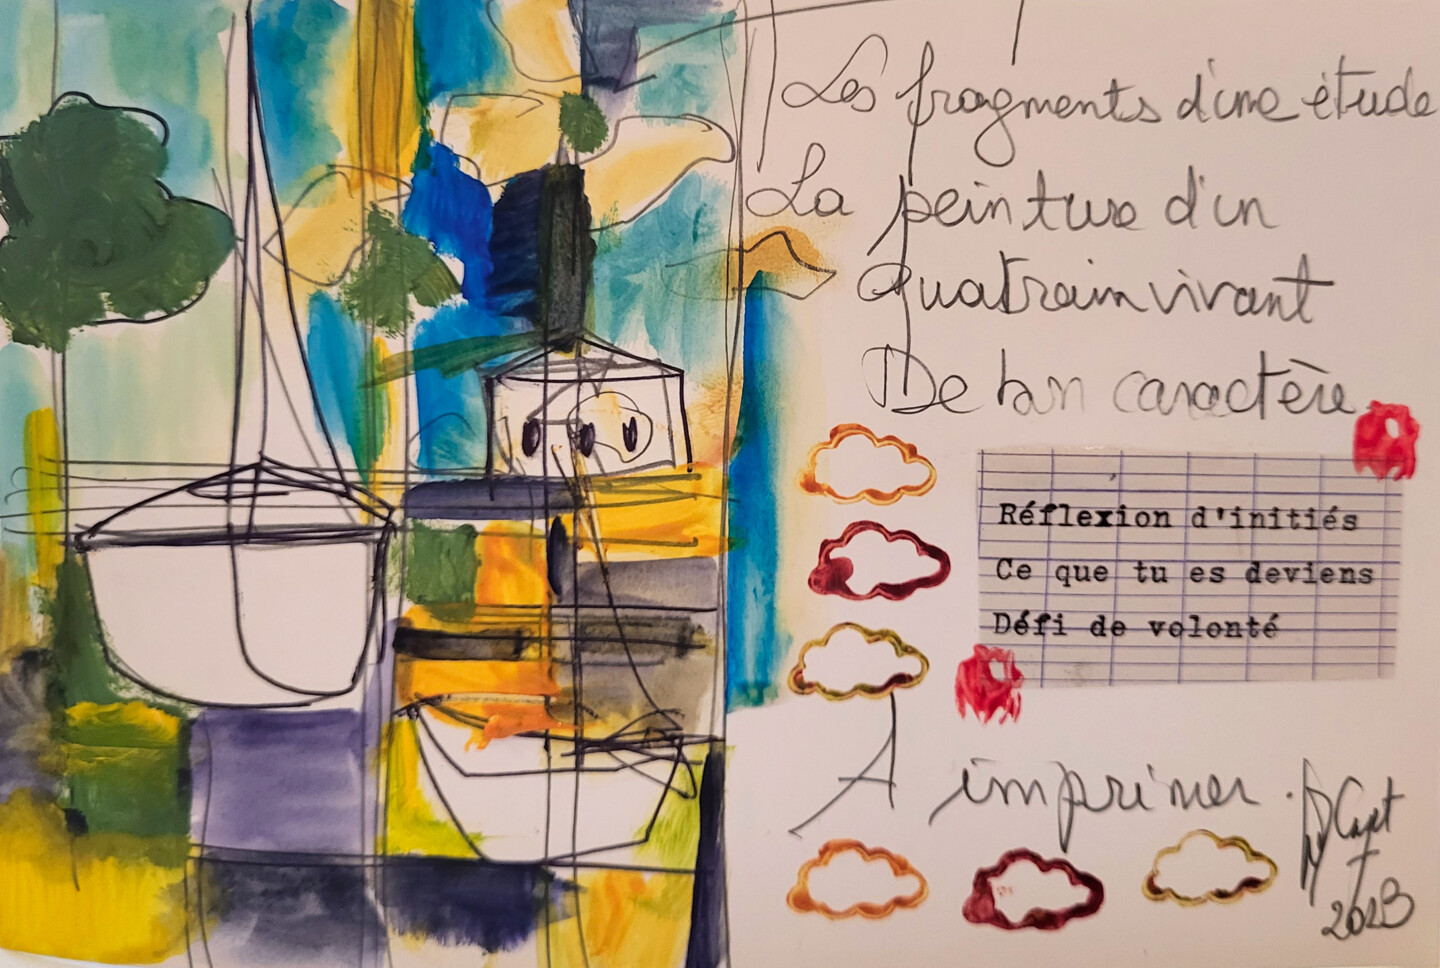 Les fragments d'une étude
La peinture d'un
quatrain vivant
De bon caractère
Réflexion d'initiés
Ce que tu es deviens
Défi de volonté
A imprimer.
Capt
2023